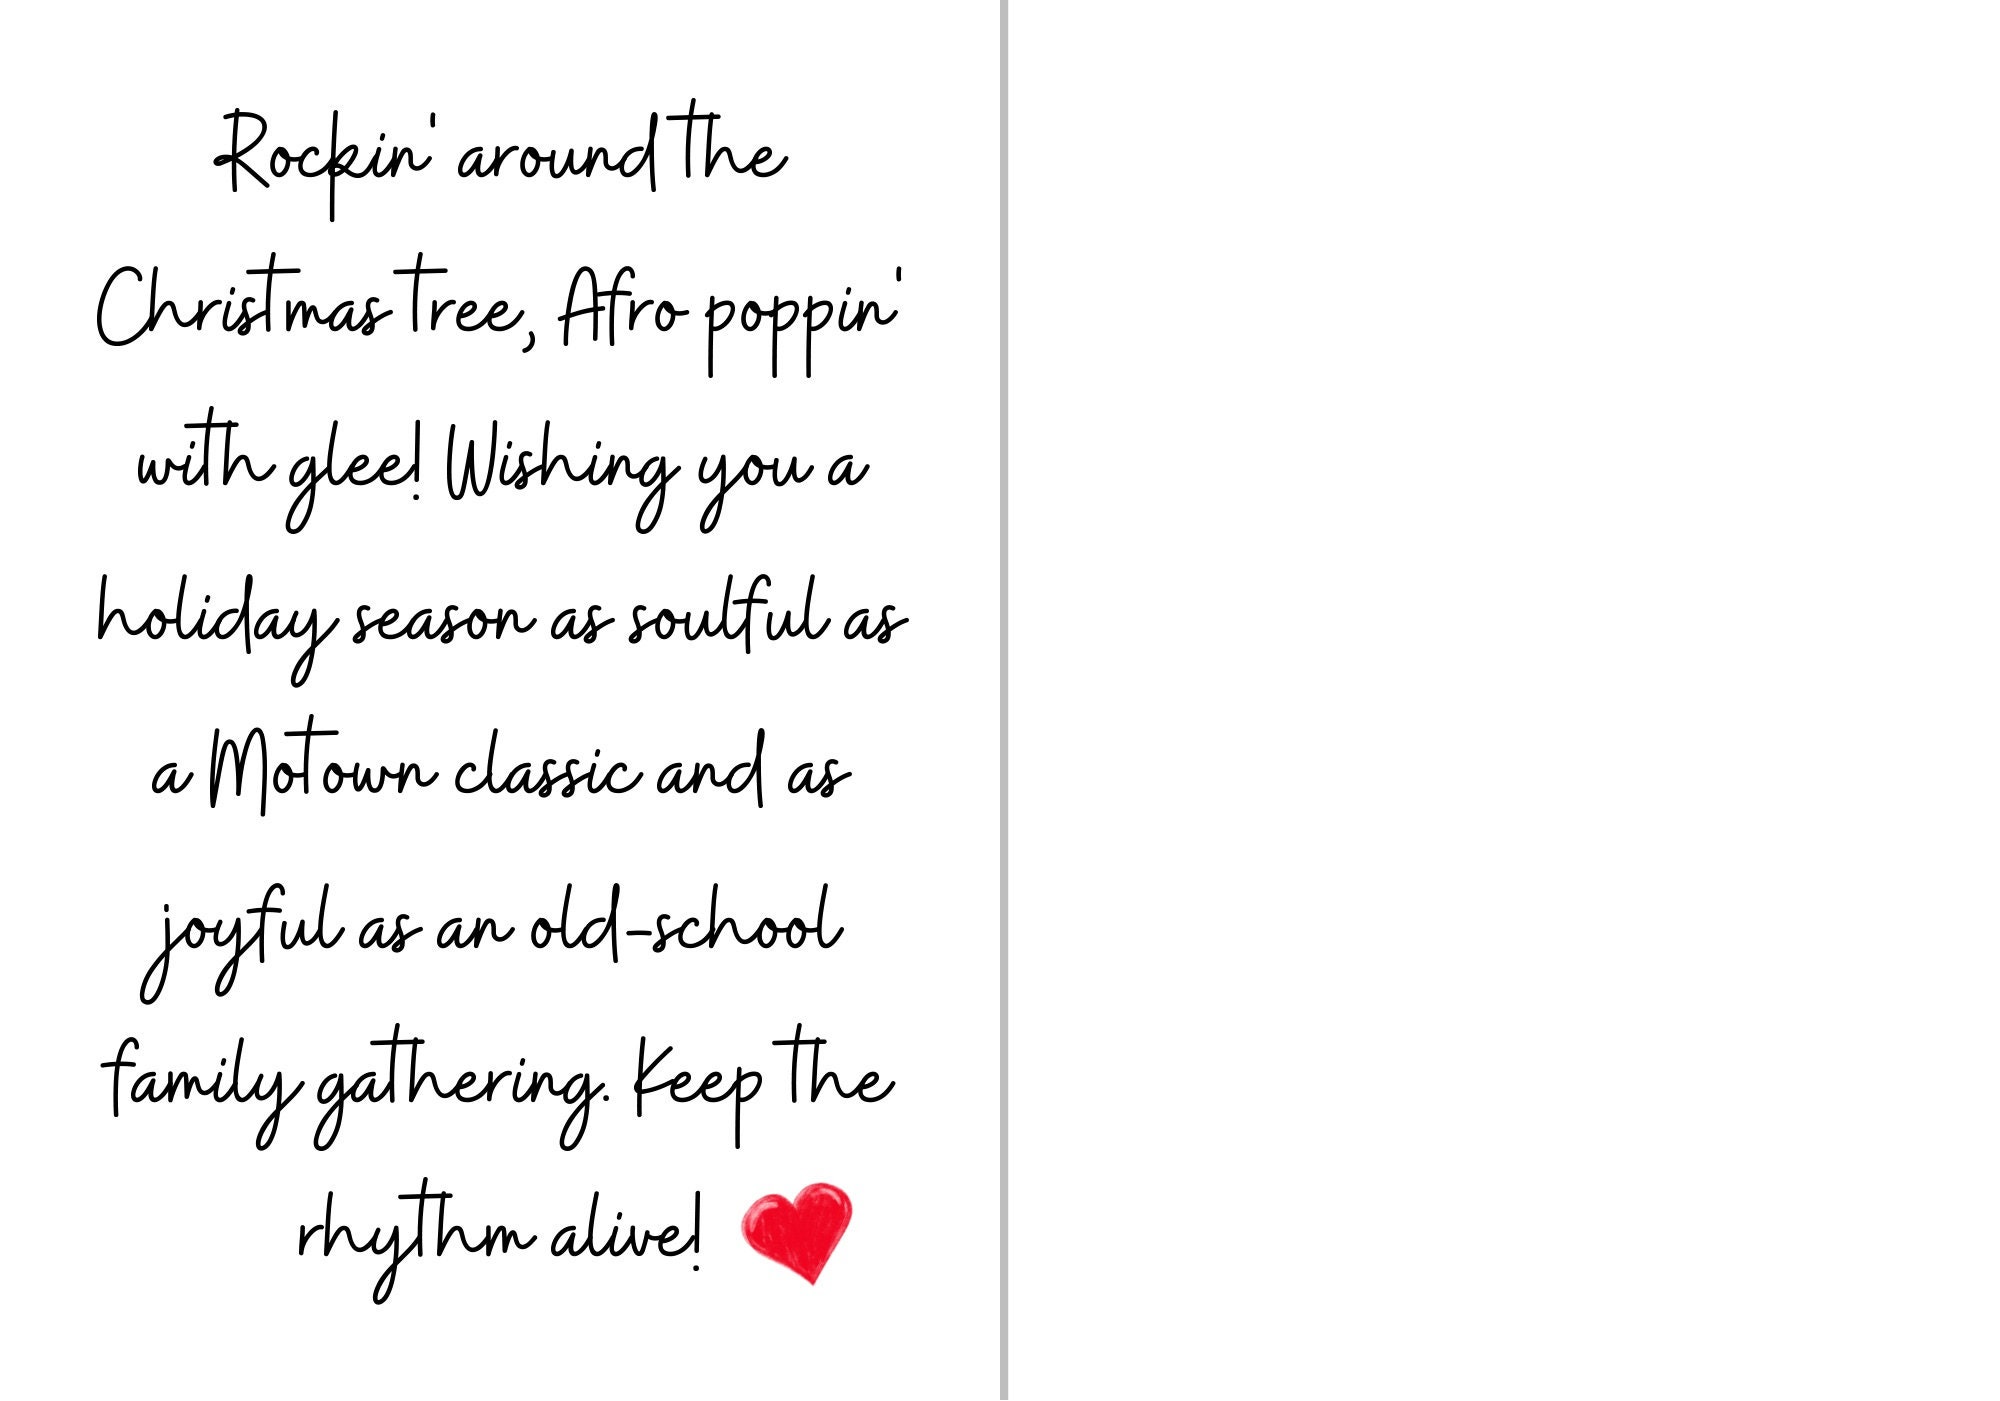 Rockin' around the
Christmas tree, Afro poppin'
with glee! Wishing you a
holiday season as soulful as
a Motown classic and as
joyful as an old-school
family gathering. Keep the
rhythm alive!